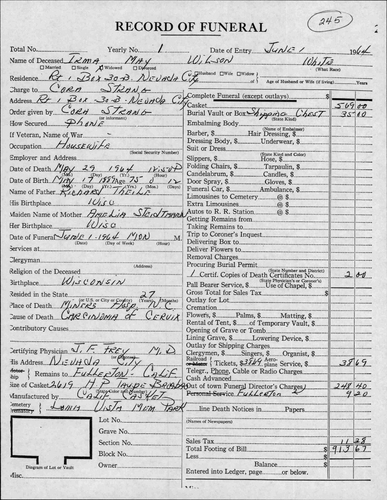 RECORD OF FUNERAL
245
Total No. Yearly No. 1 Date of Entry June 1 1964
Name of Deceased Irma May Wilson White
Married Single Widowed Divorced (What Race)
Residence Rt 1 Box 30-B- Nevada City Husband Wife Widow
Age of Husband or Wife (if living) Years
Charge to Cora Strang
Address Rt 1 Box 30-B- Nevada City
Order given by Cora Strang
How Secured Phone
If Veteran, Name of War
(Social Security Number)
Occupation Housewife
Employer and Address
Date of Death May 29 1964 12:50 P
Date of Birth May 17 1889 Age 75 0 12
Name of Father Richard Theile
His Birthplace Wisc
Maiden Name of Mother Amelia
Her Birthplace Wisc
Date of Funeral June 1-1964 Mon M
(Date) (Day of Week) (Hour)
Services at
Clergyman
(Address)
Religion of the Deceased
Birthplace Wisconsin
Resided in the State 27
(or U.S. or City or County) (Years) (Months)
Place of Death Miners Hosp. N.C.
Cause of Death Carcinoma of Cervix
Contributory Causes
Certifying Physician J. F. Frey M.D.
His Address Nevada City
Remains to Fullerton- Calif
Size of Casket 2619 H.P. Taupe
Manufactured by Calif Casket
Loma Vista Mem Park
Lot No.
Grave No.
Section No.
Block No.
Owner
Diagram of Lot or Vault
Complete Funeral (except outlays) $
Casket 509 00
Burial Vault or Box Shipping Chest 35 00
(State Kind)
Embalming Body
(Name of Embalmer)
Barber, $ Hair Dressing, $
Dressing Body, $ Underwear, $
Suit or Dress
(State Kind and Color)
Slippers, $ Hose, $
Folding Chairs, $ Tarpaulin, $
Candelabrum, $ Candles, $
Door Spray, $ Gloves, $
Funeral Car, $ Ambulance, $
Limousines to Cemetery @ $
Extra Limousines @ $
Autos to R. R. Station @ $
Getting Remains from
Taking Remains to
Trip to Coroner's Inquest
Delivering Box to
Deliver Flowers to
Removal Charges
Procuring Burial Permit
(State Number and District)
1 Certif. Copies of Death Certificates No. 2 00
(State Physician's or Coroner's)
Pall Bearer Service, $ Use of Chapel, $
Gross Total for Sales Tax $
Outlay for Lot
Cremation
Flowers, $ Palms, $ Matting, $
Rental of Tent, $ of Temporary Vault, $
Opening of Grave or Tomb
Lining Grave, $ Lowering Device, $
Outlay for Shipping Charges
Clergymen, $ Singers, $ Organist, $
Railroad Tickets, $ Aeroplane Service, $ 38 69
Teleph., Phone, Cable or Radio Charges
Cash Advanced
Out of town Funeral Director's Charges 248 40
Personal Service Fullerton 9 20
line Death Notices in Papers
(Names of Newspapers)
Sales Tax 11 28
Total Footing of Bill $ 913 67
Less
Balance $
Entered into Ledger, page or below.